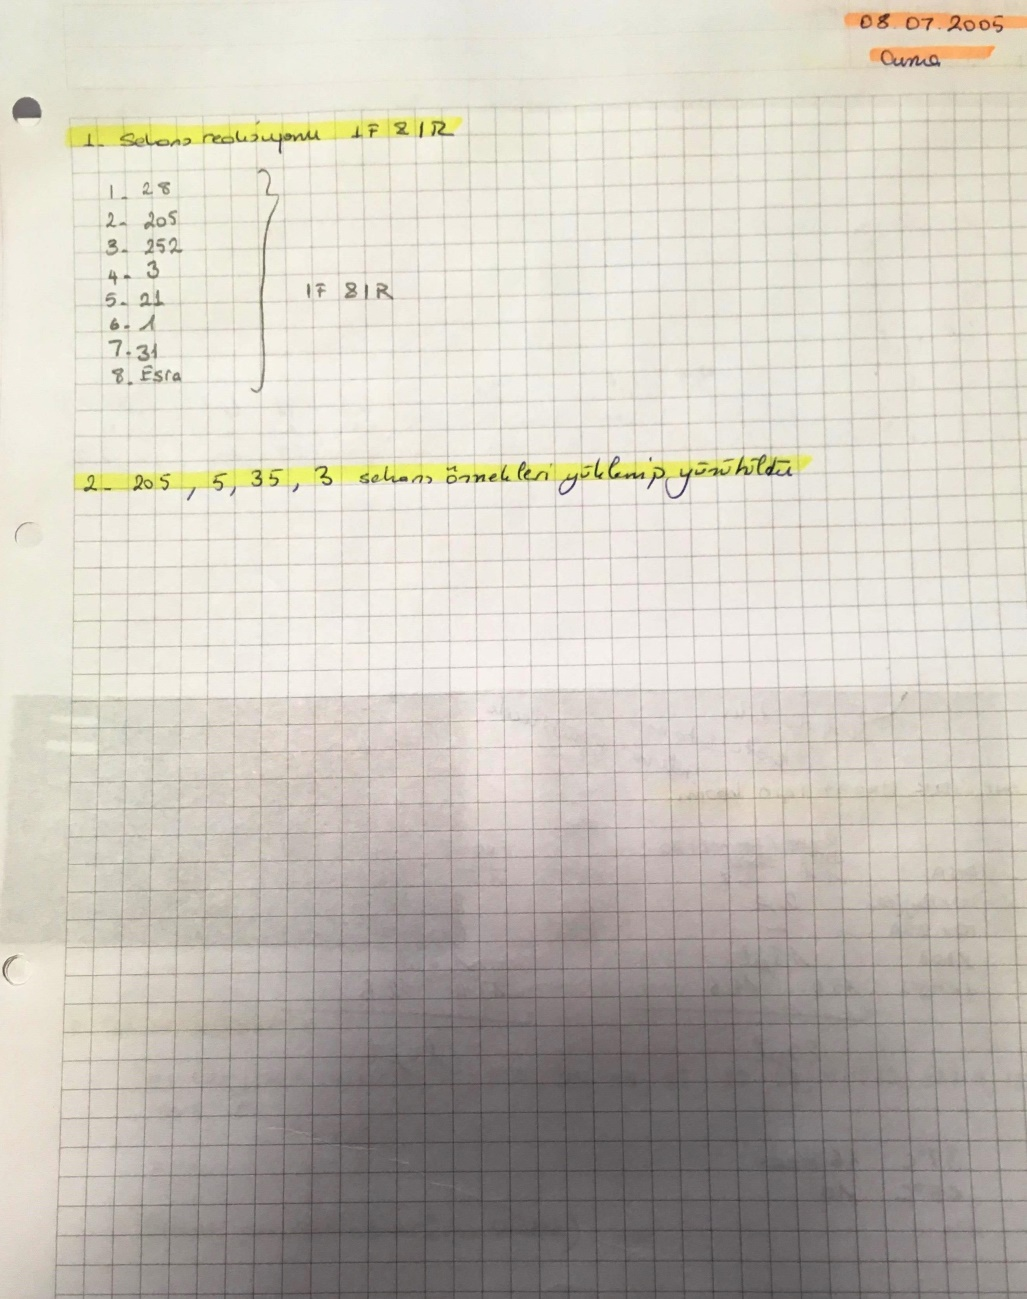 08.07.2005
Cuma
1- Sekans reaksiyonu 1F 81R
1- 28
2- 205
3- 252
4- 3
5- 21
6- 1
7- 31
8. Esra
1F 81R
2- 205, 5, 35, 3 sekans örnekleri yüklenip yürütüldü